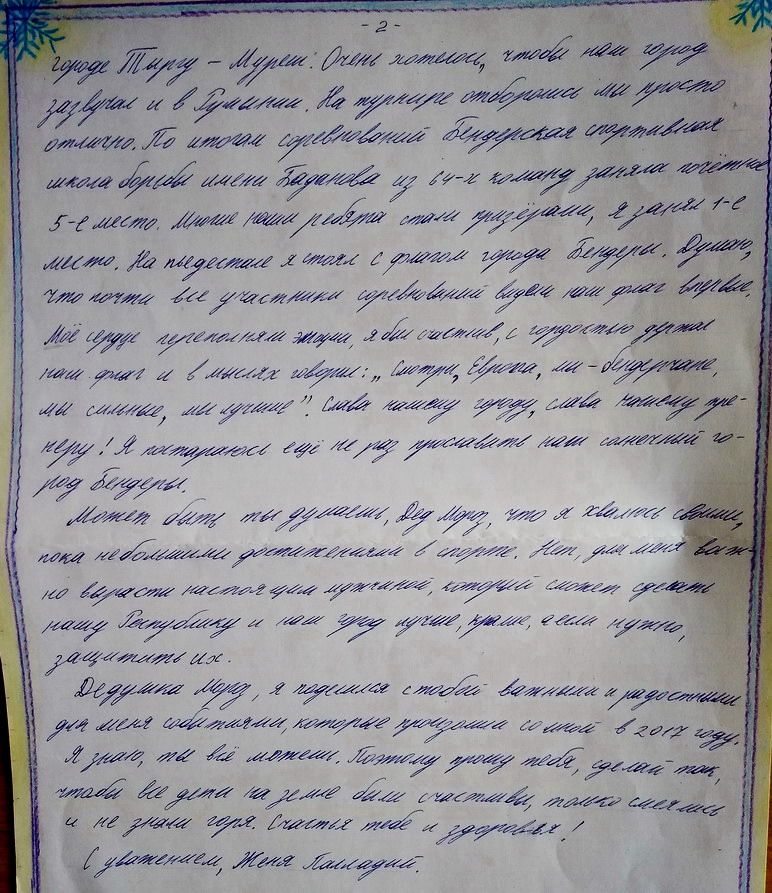 - 2 -
городе Тыргу - Муреш. Очень хотелось, чтобы наш город
зазвучал и в Румынии. На турнире отборолись мы просто
отлично. По итогам соревнований Бендерская спортивная
школа борьбы имени Баданова из 64-х команд заняла почётное
5-е место. Многие наши ребята стали призёрами, я занял 1-е
место. На пьедестале я стоял с флагом города Бендеры. Думаю,
что почти все участники соревнований видели наш флаг впервые.
Моё сердце переполняли эмоции, я был счастлив, с гордостью держал
наш флаг и в мыслях говорил: „Смотри, Европа, мы - бендерчане,
мы сильные, мы лучшие”. Слава нашему городу, слава нашему тре-
неру! Я постараюсь ещё не раз прославить наш солнечный го-
род Бендеры.
Может быть ты думаешь, Дед Мороз, что я хвалюсь своими,
пока небольшими достижениями в спорте. Нет, для меня важ-
но вырасти настоящим мужчиной, который сможет сделать
нашу Республику и наш город лучше, краше, а если нужно,
защитить их.
Дедушка Мороз, я поделился с тобой важными и радостными
для меня событиями, которые произошли со мной в 2017 году.
Я знаю, ты всё можешь. Поэтому прошу тебя, сделай так,
чтобы все дети на земле были счастливы, только смеялись
и не знали горя. Счастья тебе и здоровья!
С уважением, Женя Палладий.